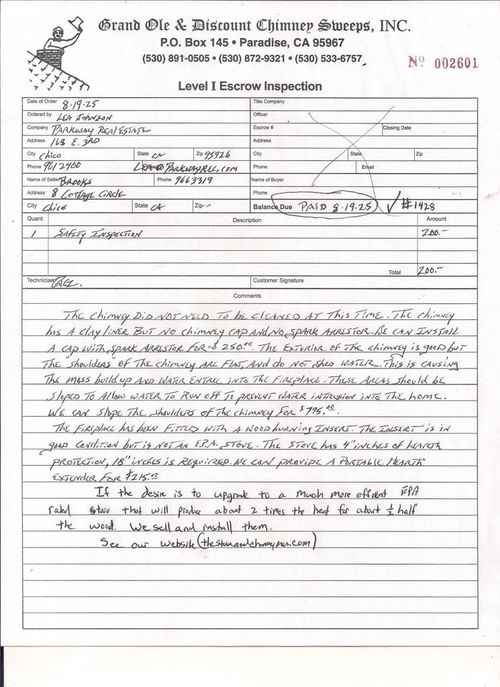 Grand Ole & Discount Chimney Sweeps, INC.
P.O. Box 145 • Paradise, CA 95967
(530) 891-0505 • (530) 872-9321 • (530) 533-6757
No 002601
Level I Escrow Inspection
Date of Order 8-19-25
Title Company
Ordered by LEA JOHNSON
Officer
Company PARKWAY REAL ESTATE
Escrow # Closing Date
Address 168 E. 3RD
Address
City Chico State CA Zip 95926
City State Zip
Phone 961 2900 LEA@PARKWAYREC.COM
Phone Email
Name of Seller BROOKS Phone 966 3319
Name of Buyer
Address 8 COTTAGE CIRCLE
Phone
City Chico State CA Zip
Balance Due PAID 8-19-25 ✓ #1428
Quant. Description Amount
1 SAFETY INSPECTION 200.-
Total 200.-
Technician
Customer Signature
Comments
THE CHIMNEY DID NOT NEED TO BE CLEANED AT THIS TIME. THE CHIMNEY
HAS A CLAY LINER BUT NO CHIMNEY CAP AND NO SPARK ARRESTOR. WE CAN INSTALL
A CAP WITH SPARK ARRESTOR FOR $250.00 THE EXTERIOR OF THE CHIMNEY IS GOOD BUT
THE "SHOULDERS" OF THE CHIMNEY ARE FLAT AND DO NOT SHED WATER. THIS IS CAUSING
THE MOSS BUILD UP AND WATER ENTREE INTO THE FIREPLACE. THESE AREAS SHOULD BE
SLOPED TO ALLOW WATER TO RUN OFF TO PREVENT WATER INTRUSION INTO THE HOME.
WE CAN SLOPE THE SHOULDERS OF THE CHIMNEY FOR $795.00.
THE FIREPLACE HAS BEEN FITTED WITH A WOODBURNING INSERT. THE INSERT IS IN
GOOD CONDITION BUT IS NOT AN E.P.A. STOVE. THE STOVE HAS 4" INCHES OF HEARTH
PROTECTION, 18" INCHES IS REQUIRED. WE CAN PROVIDE A PORTABLE HEARTH
EXTENDER FOR $215.00
If the desire is to upgrade to a much more efficient EPA
rated stove that will produce about 2 times the heat for about ½ half
the wood. We sell and install them.
See our website (thestoveandchimneyman.com)